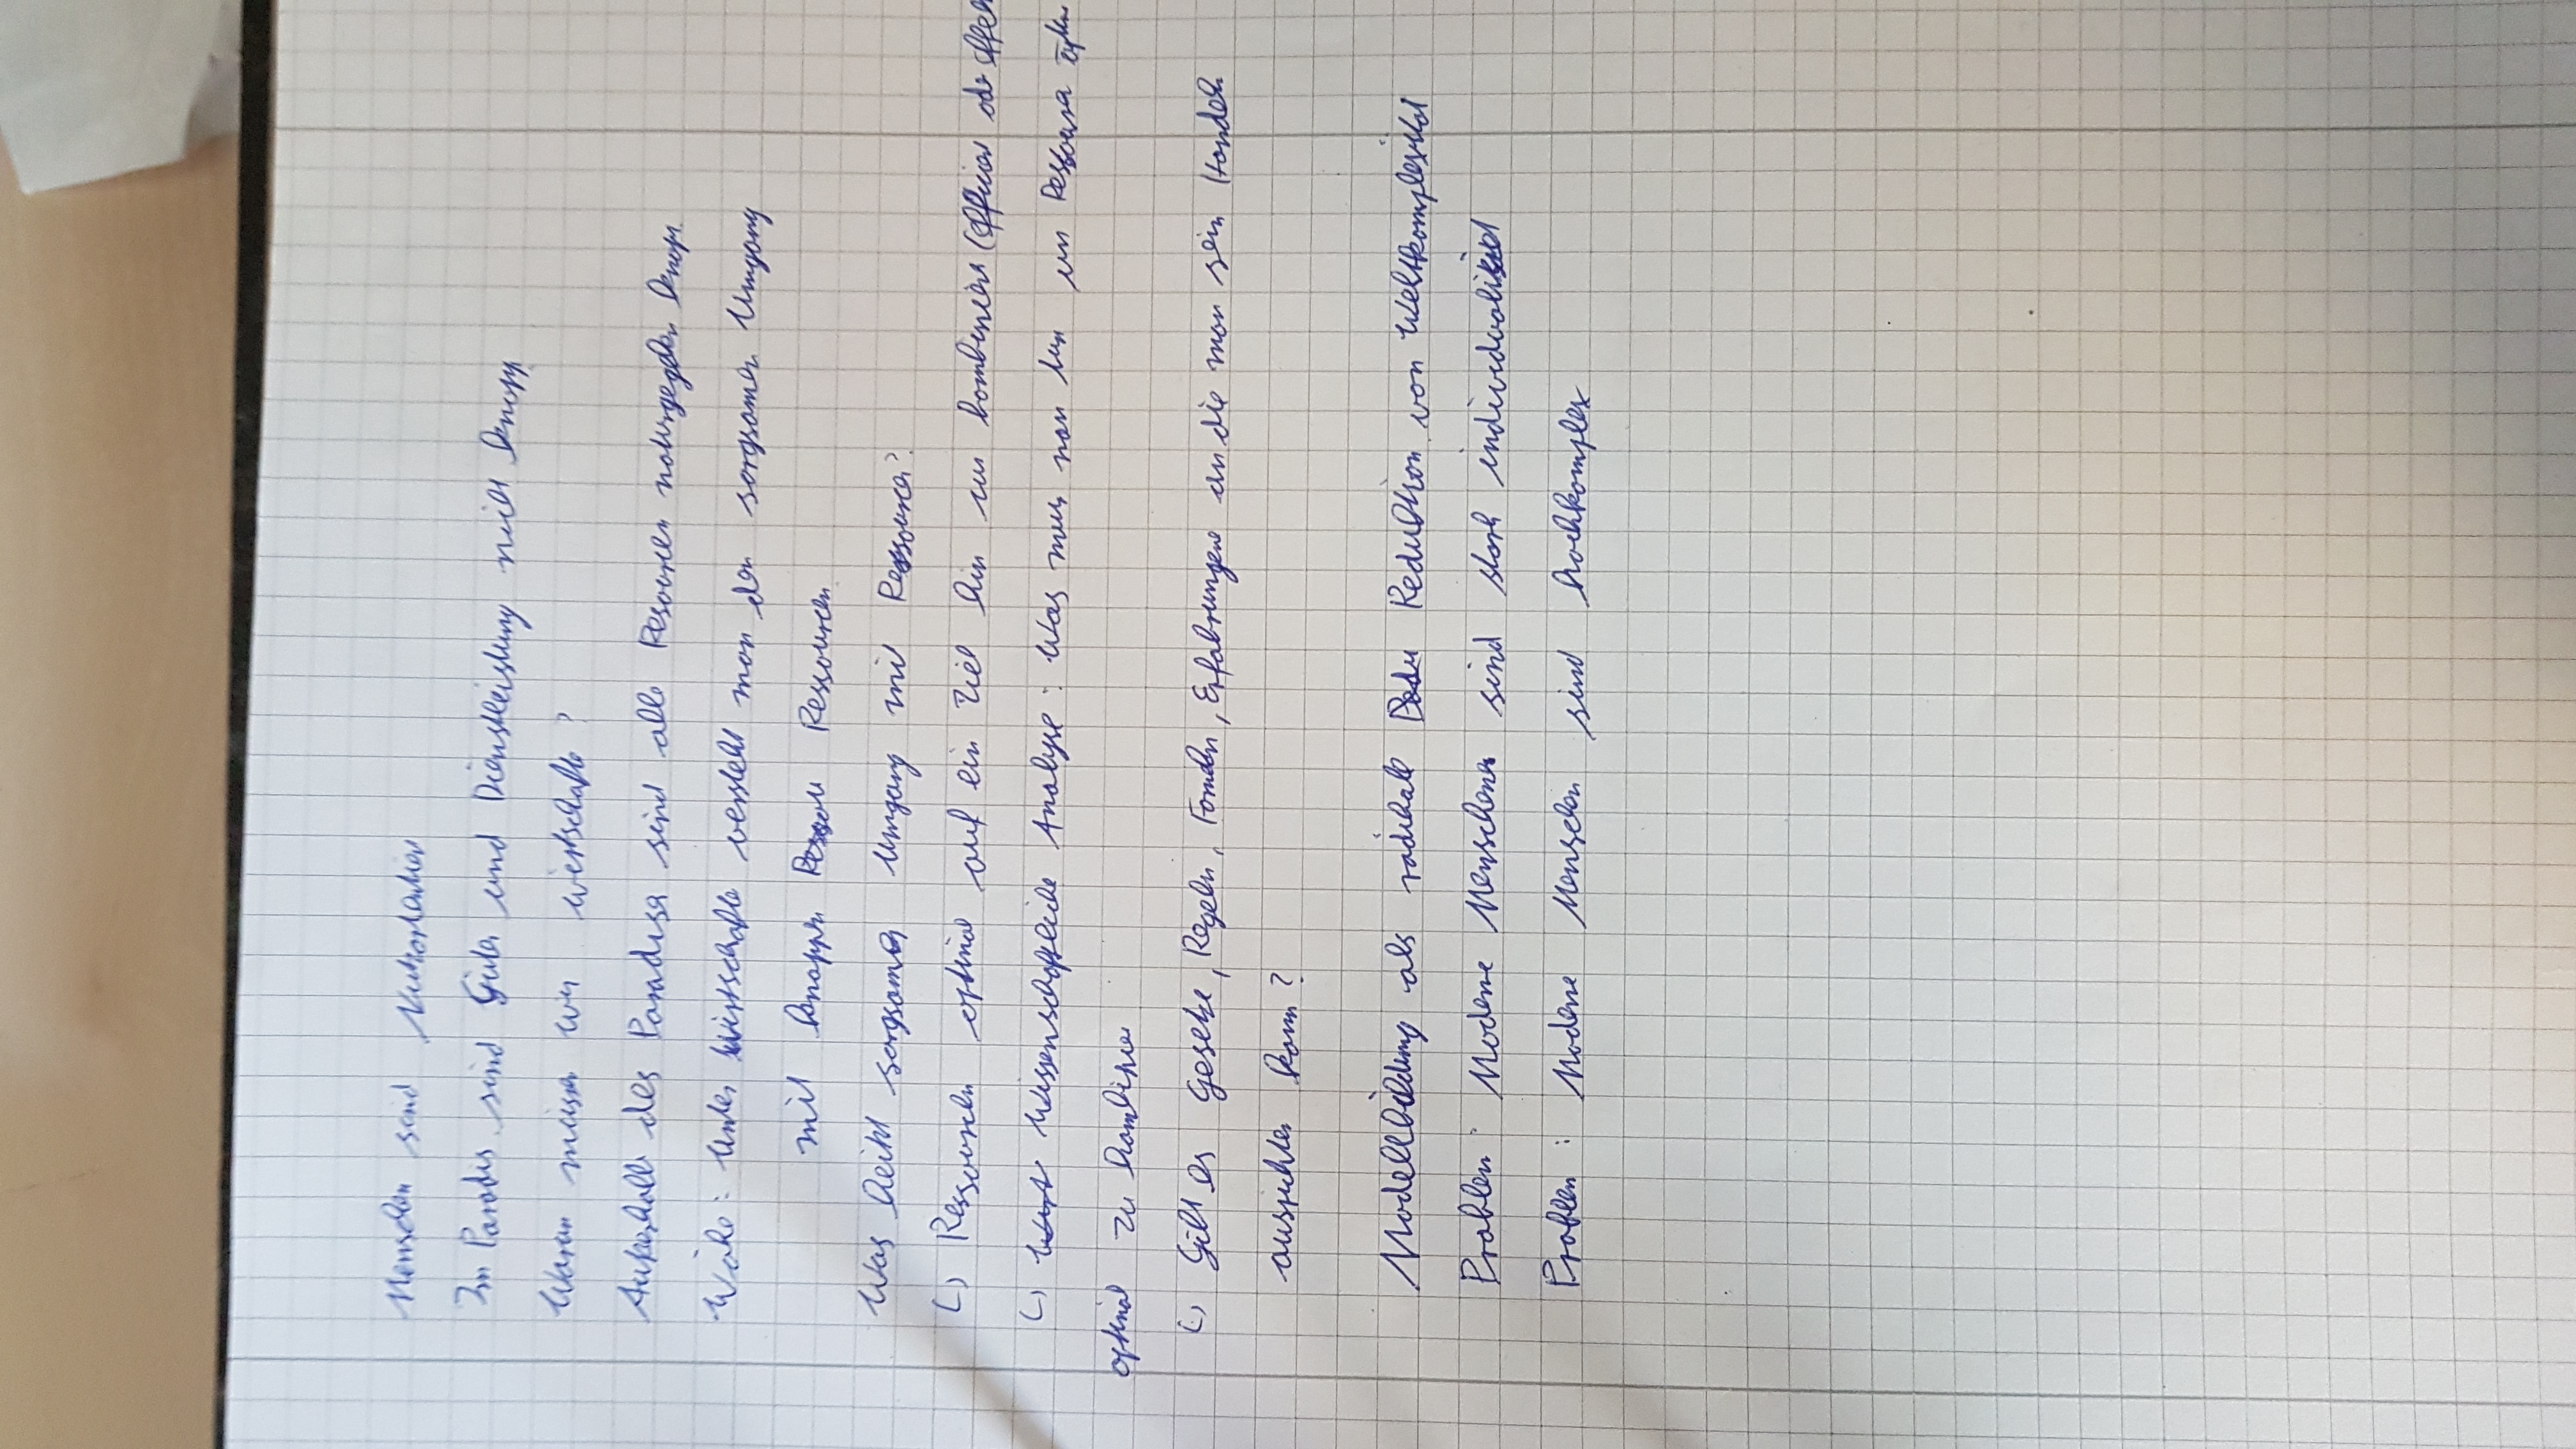 Menschen sind
Im Paradis sind Güter und Dienstleistung nicht knapp
Warum müssen wir wirtschafte?
Außerhalb des Paradises sind alle Resourcen naturgegeben knapp.
Wöhe: Unter Wirtschafte versteht man den sorgsamen Umgang
mit knappen Ressou Ressourcen.
Was heißt sorgsamer Umgang mit Ressourcen?
Ressourcen optimal auf ein Ziel hin zu kombinieren (effizient oder
Wirt Wissenschaftliche Analyse: Was muss man tun um Ressourcen
optimal zu kombinieren
Gibt es Gesetze, Regeln, Formeln, Erfahrungene an die man sein Handeln
ausrichten kann?
Modellbildung als radikale Redu Reduktion von Weltkomplexität
Problem: Moderne Menschenen sind stark individualisiert
Problem: Moderne Menschen sind hochkomplex